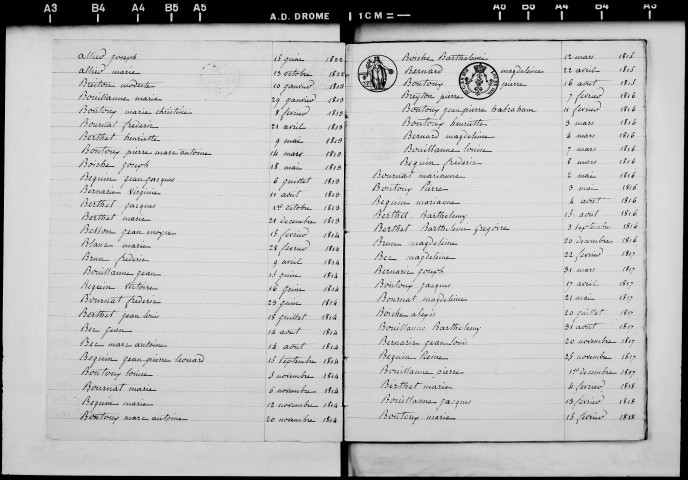 A3 B4 A4 B5 A5 A.D. DROME 1CM A5 B5 A4 B4 A3
allied joseph 15 juin 1812
allied marie 13 octobre 1812
Breton modeste 10 janvier 1813
Bouillanne marie 29 janvier 1813
Bontoux marie christine 8 fevrier 1813
Bournat frederic 21 avril 1813
Berthet henriette 9 mai 1813
Bontoux pierre marc antoine 14 mars 1813
Boiche joseph 18 mai 1813
Beguin jean jacques 6 juillet 1813
Bernarie virginie 11 aout 1813
Berthet jacques 1er octobre 1813
Berthet marie 21 decembre 1813
Besson jean moyse 15 fevrier 1814
Blanc marie 28 fevrier 1814
Brun frederic 9 avril 1814
Bouillanne jean 15 juin 1814
Beguin victoire 16 juin 1814
Bournat frederic 23 juin 1814
Berthet jean louis 18 juillet 1814
Bec jean 14 aout 1814
Bec marc antoine 14 aout 1814
Beguin jean pierre leonard 15 septembre 1814
Bontoux louise 5 novembre 1814
Bournat marie 6 novembre 1814
Beguin marie 12 novembre 1814
Bontoux marc antoine 20 novembre 1814
Boiche Barthelemi 12 mars 1815
Bernard magdeleine 22 avril 1815
Bontoux pierre 16 aout 1815
Breyton pierre 7 fevrier 1816
Bontoux jean pierre habraham 11 fevrier 1816
Bontoux henriette 3 mars 1816
Bernard magdeleine 4 mars 1816
Bouillanne louise 7 mars 1816
Beguin frederic 8 mars 1816
Bournat marianne 2 mai 1816
Bontoux Pierre 3 mai 1816
Beguin marianne 4 aout 1816
Berthet Barthelemy 15 aout 1816
Berthet Barthelemi gregoire 3 septembre 1816
Brun magdeleine 20 decembre 1816
Bec magdeleine 22 fevrier 1817
Bernarie joseph 31 mars 1817
Bontoux jacques 17 avril 1817
Bournat magdeleine 21 mai 1817
Boiche alexis 20 juillet 1817
Bouillanne Barthelemy 31 aout 1817
Bernarie jean louis 20 novembre 1817
Beguin Reine 25 novembre 1817
Bouillanne pierre 1er decembre 1817
Berthet marie 4 fevrier 1818
Bouillanne jacques 13 fevrier 1818
Bontoux marie 15 fevrier 1818